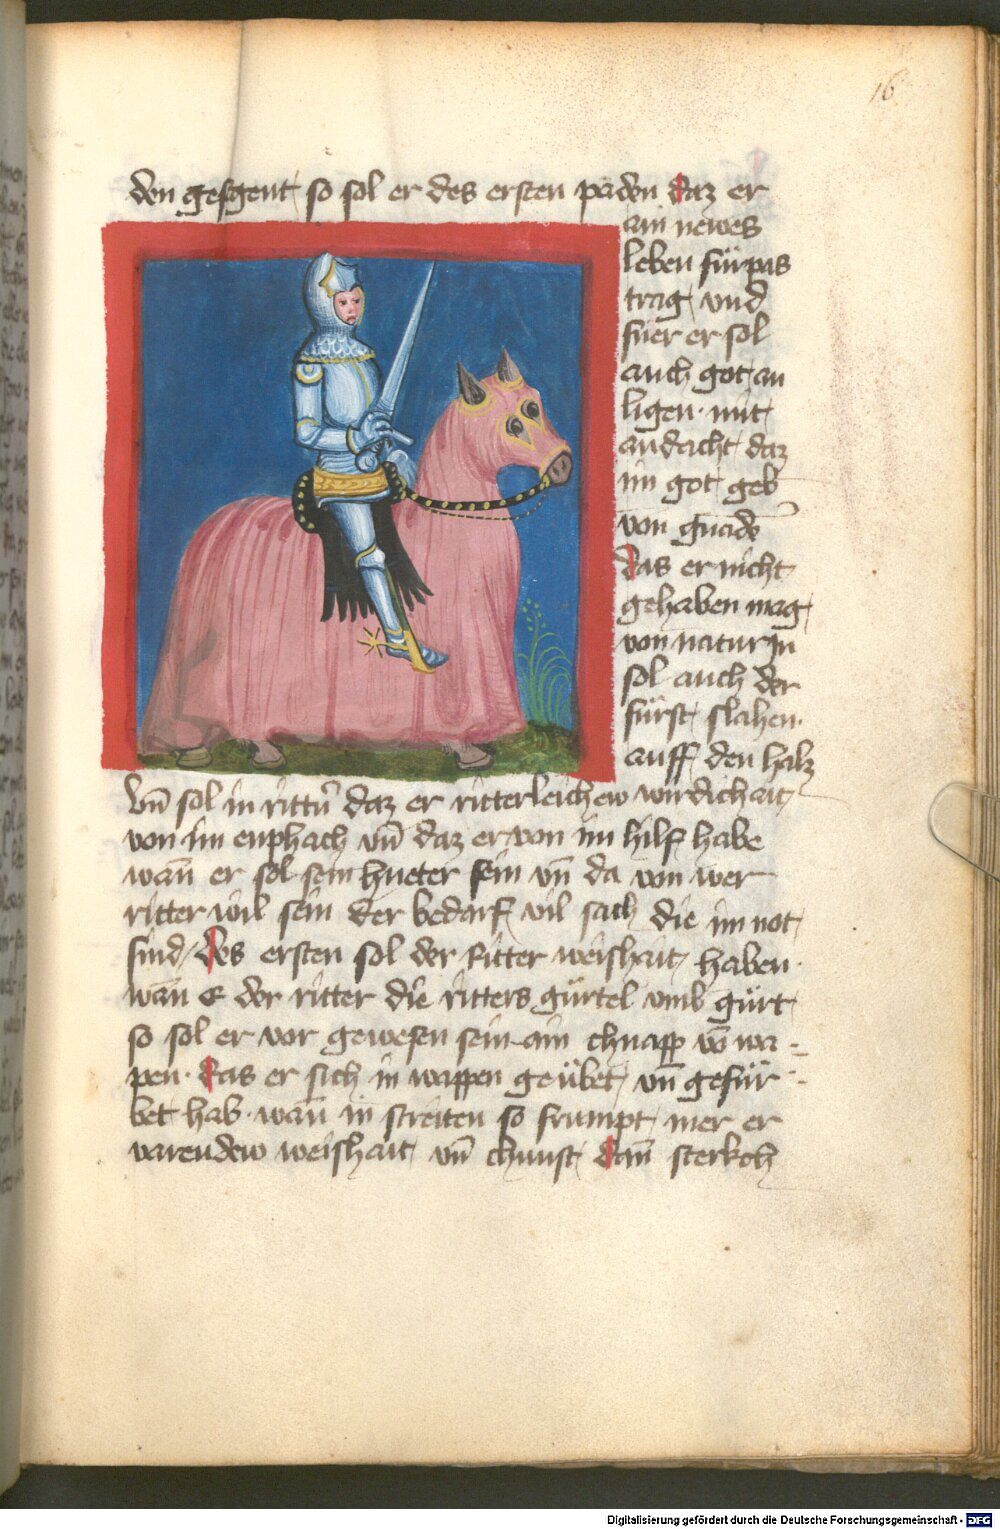 16
den gesgent so sol er des ersten paden daz er
ain newes
leben fürpas
trag und
füer er sol
auch got an
ligen mit
andacht daz
im got geb
von gnadē
das er nicht
gehaben mag
von natur In
sol auch der
fürst slahen
auff den halz
vn̄ sol in rittn̄ daz er ritterleichew wirdichait
von im enphach vn̄ daz er von im hilf habe
wan̄ er sol sein hueter sein vn̄ da von wer
ritter wil sein der bedarf vil sach die im not
sind des ersten sol der Ritter weishait haben
wan̄ E der ritter die ritters gürtel vmb gürt
so sol er vor gewesen sein ain chnapp vō wa-
pen das er sich in wappen geübet vn̄ gefür-
bet hab wan̄ in streiten so frumpt mer er
varendew weishait vn̄ chunst dan̄ sterkch
Digitalisierung gefördert durch die Deutsche Forschungsgemeinschaft - DFG